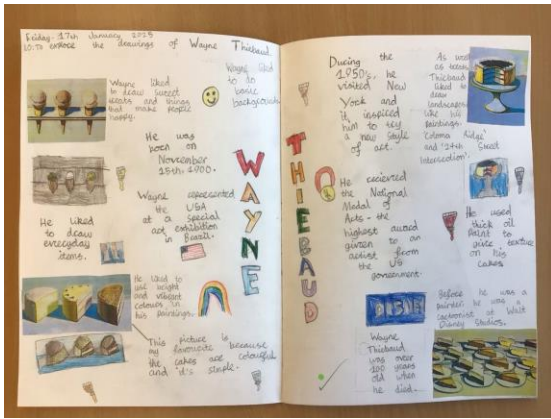 Friday, 17th January 2025
LO: To explore the drawings of Wayne Thiebaud
Wayne liked
to draw sweet
treats and things
that make people
happy.
Wayne liked
to do
basic
backgrounds
He was
born on
November
15th, 1900.
Wayne represented
the USA
at a special
art exhibition
in Brazil.
He liked
to draw
everyday
items.
He liked to
use bright
and vibrant
colours in
his paintings.
This picture is
my favourite because
the cakes are colourful
and it's simple.
WAYNE
THIEBAUD
During the
1950's, he
visited New
York and
it inspired
him to try
a new style
of art.
As well
as treats,
Thiebaud
liked to
draw
landscapes
like his
paintings:
'Coloma Ridge'
and '24th Street
Intersection'.
He recieved
the National
Medal of
Arts - the
highest award
given to an
artist from
the US
government.
He used
thick oil
paint to
give texture
on his
cakes
Before he was a
painter he was a
cartoonist at Walt
Disney Studios.
Wayne
Thiebaud
was over
100 years
old when
he died...